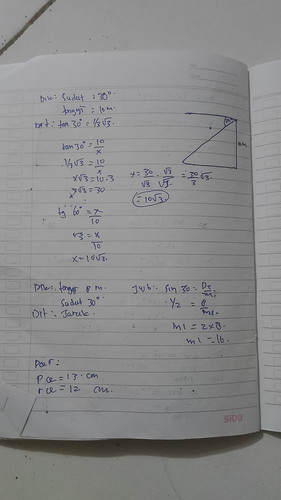 Dik: Sudut : 30°
tinggi = 10 m.
Dit: tan 30° = 1/3√3.
30°
10 m
tan 30° = 10/x
1/3√3 = 10/x
x√3 = 10.3
x√3 = 30
x = 30/√3 . √3/√3 = 30/3 √3
= 10√3.
tg 60° = x/10
√3 = x/10
x = 10√3.
Dik: tinggi 8 m.
Sudut 30°.
Dit: Jarak.
Jwb: Sin 30 = De/mi
1/2 = 8/mi
mi = 2 x 8
mi = 16.
= 13 cm
= 12 cm.
SiDU